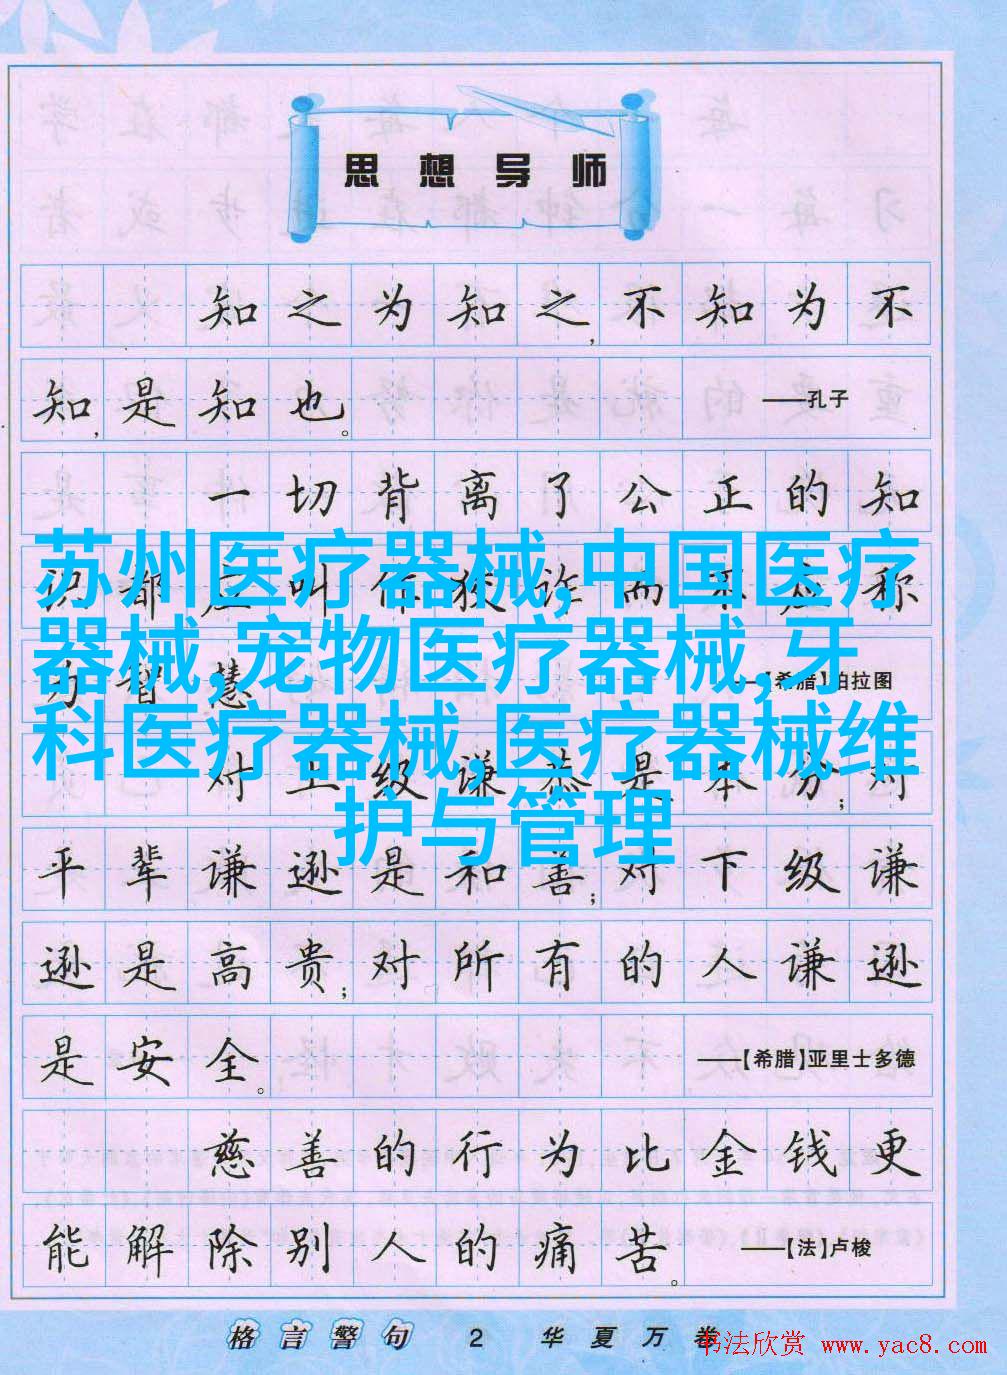 思想导师
知之为知之,不知为不
知,是知也。 ——孔子
一切背离了公正的知
识都应叫作狡诈而不应称
为智慧 【希腊】柏拉图
苏州医疗器械,中国医疗
器械,宠物医疗器械,牙
科医疗器械,医疗器械维
护与管理
对上级谦恭是本分;对
平辈谦逊是和善;对下级谦
逊是高贵;对所有的人谦逊
是安全。 ——【希腊】亚里士多德
慈善的行为比金钱更
能解除别人的痛苦。 ——【法】卢梭
格言警句 2 华夏万卷
书法欣赏 www.yac8.com